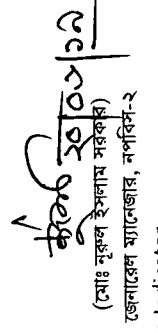 ২০|০১|১৯
(মোঃ নূরুল ইসলাম সরকার)
জেনারেল ম্যানেজার, নপবিস-২